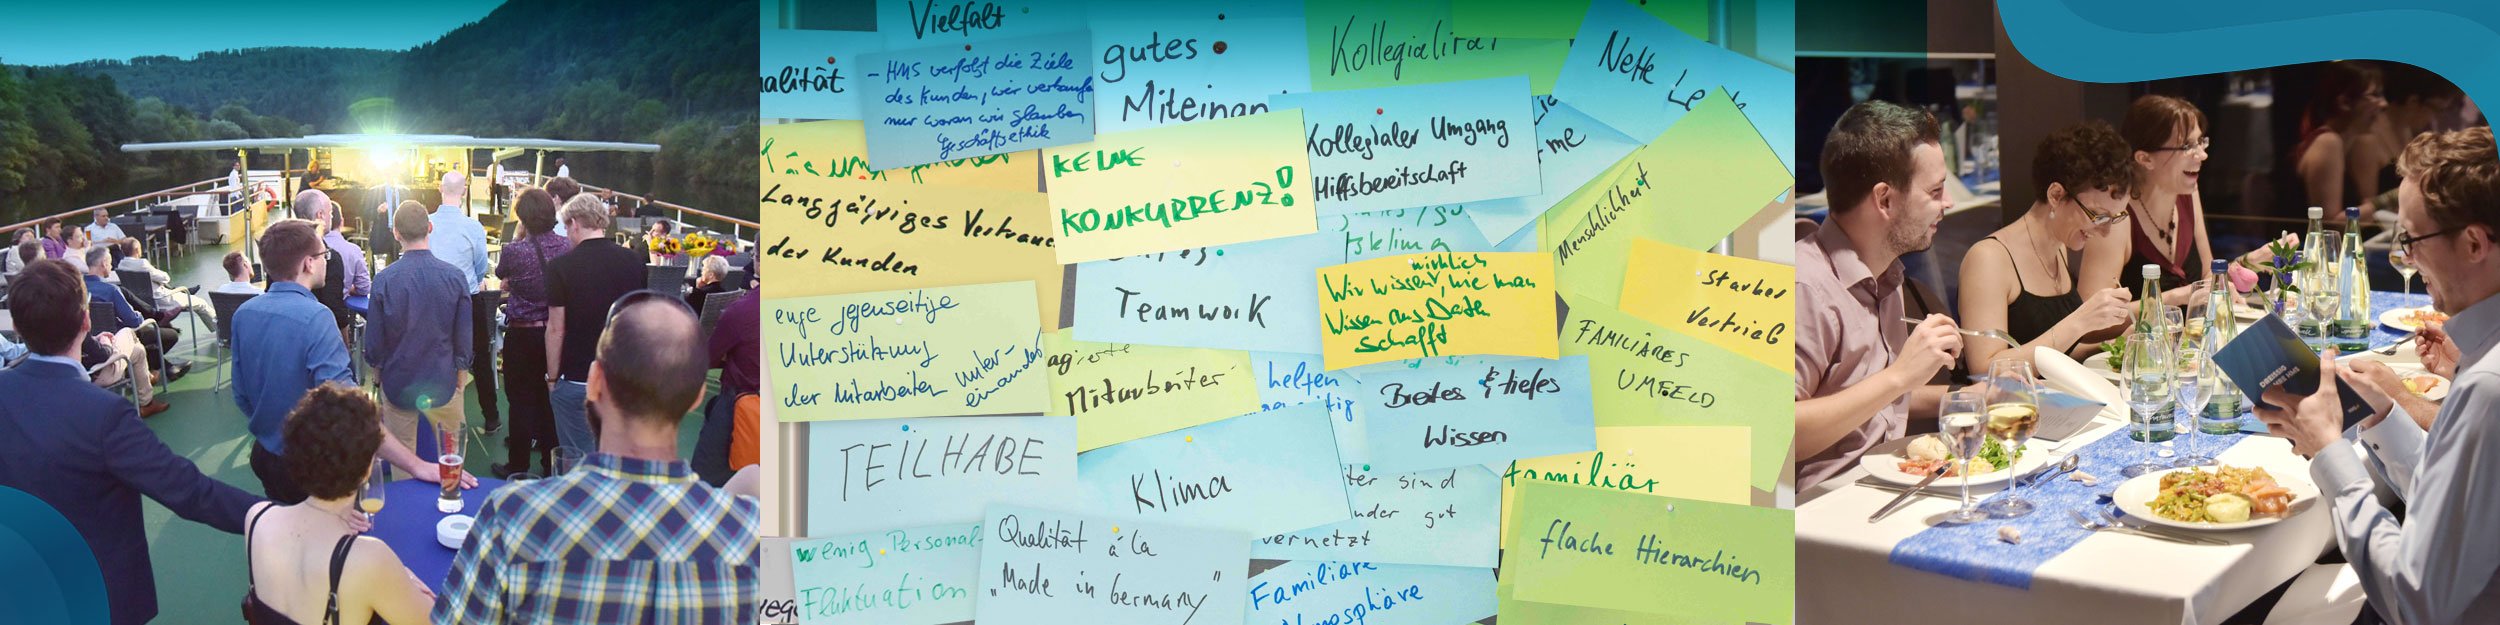 Vielfalt
alität
- HMS verfolgt die Ziele
des Kunden, wir verkaufen
nur woran wir glauben
Geschäftsethik
gutes
Miteinan
Kollegialität
Nette Le
KEINE
KONKURRENZ!
Kollegialer Umgang
Hilfsbereitschaft
me
Langjähriges Vertrauen
der Kunden
Menschlichkeit
Starker
Vertrieb
enge gegenseitige
Unterstützung
der Mitarbeiter unter-
einander
Teamwork
Wir wissen wirklich, wie man
Wissen aus Daten
schafft
FAMILIÄRES
UMFELD
Mitarbeiter
helfen
Breites & tiefes
Wissen
TEILHABE
Klima
ter sind
nder gut
vernetzt
familiär
flache Hierarchien
wenig Personal-
Fluktuation
Qualität á la
"Made in Germany"
Familiäre
mosphäre
DREISSIG
JAHRE HMS